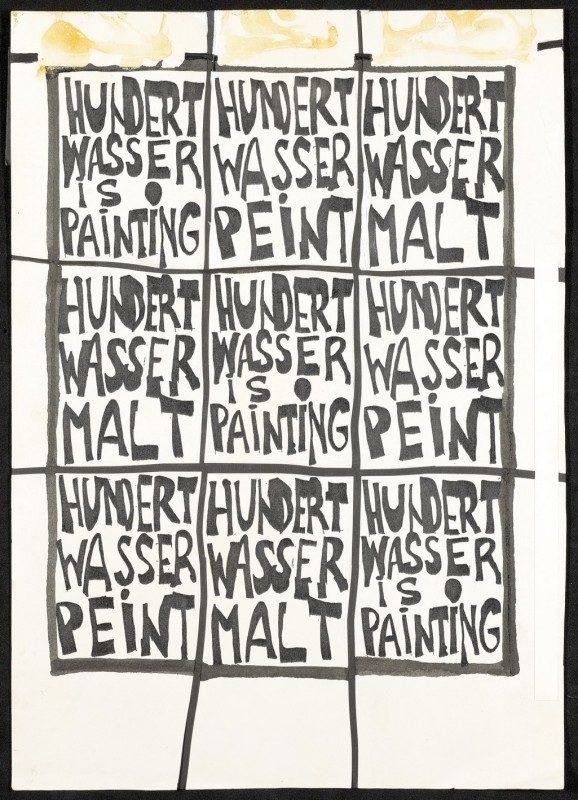 HUNDERT
WASSER
iS
PAiNTiNG
HUNDERT
WASSER
PEiNT
HUNDERT
WASSER
MALT
HUNDERT
WASSER
MALT
HUNDERT
WASSER
iS
PAiNTiNG
HUNDERT
WASSER
PEiNT
HUNDERT
WASSER
PEiNT
HUNDERT
WASSER
MALT
HUNDERT
WASSER
iS
PAiNTiNG